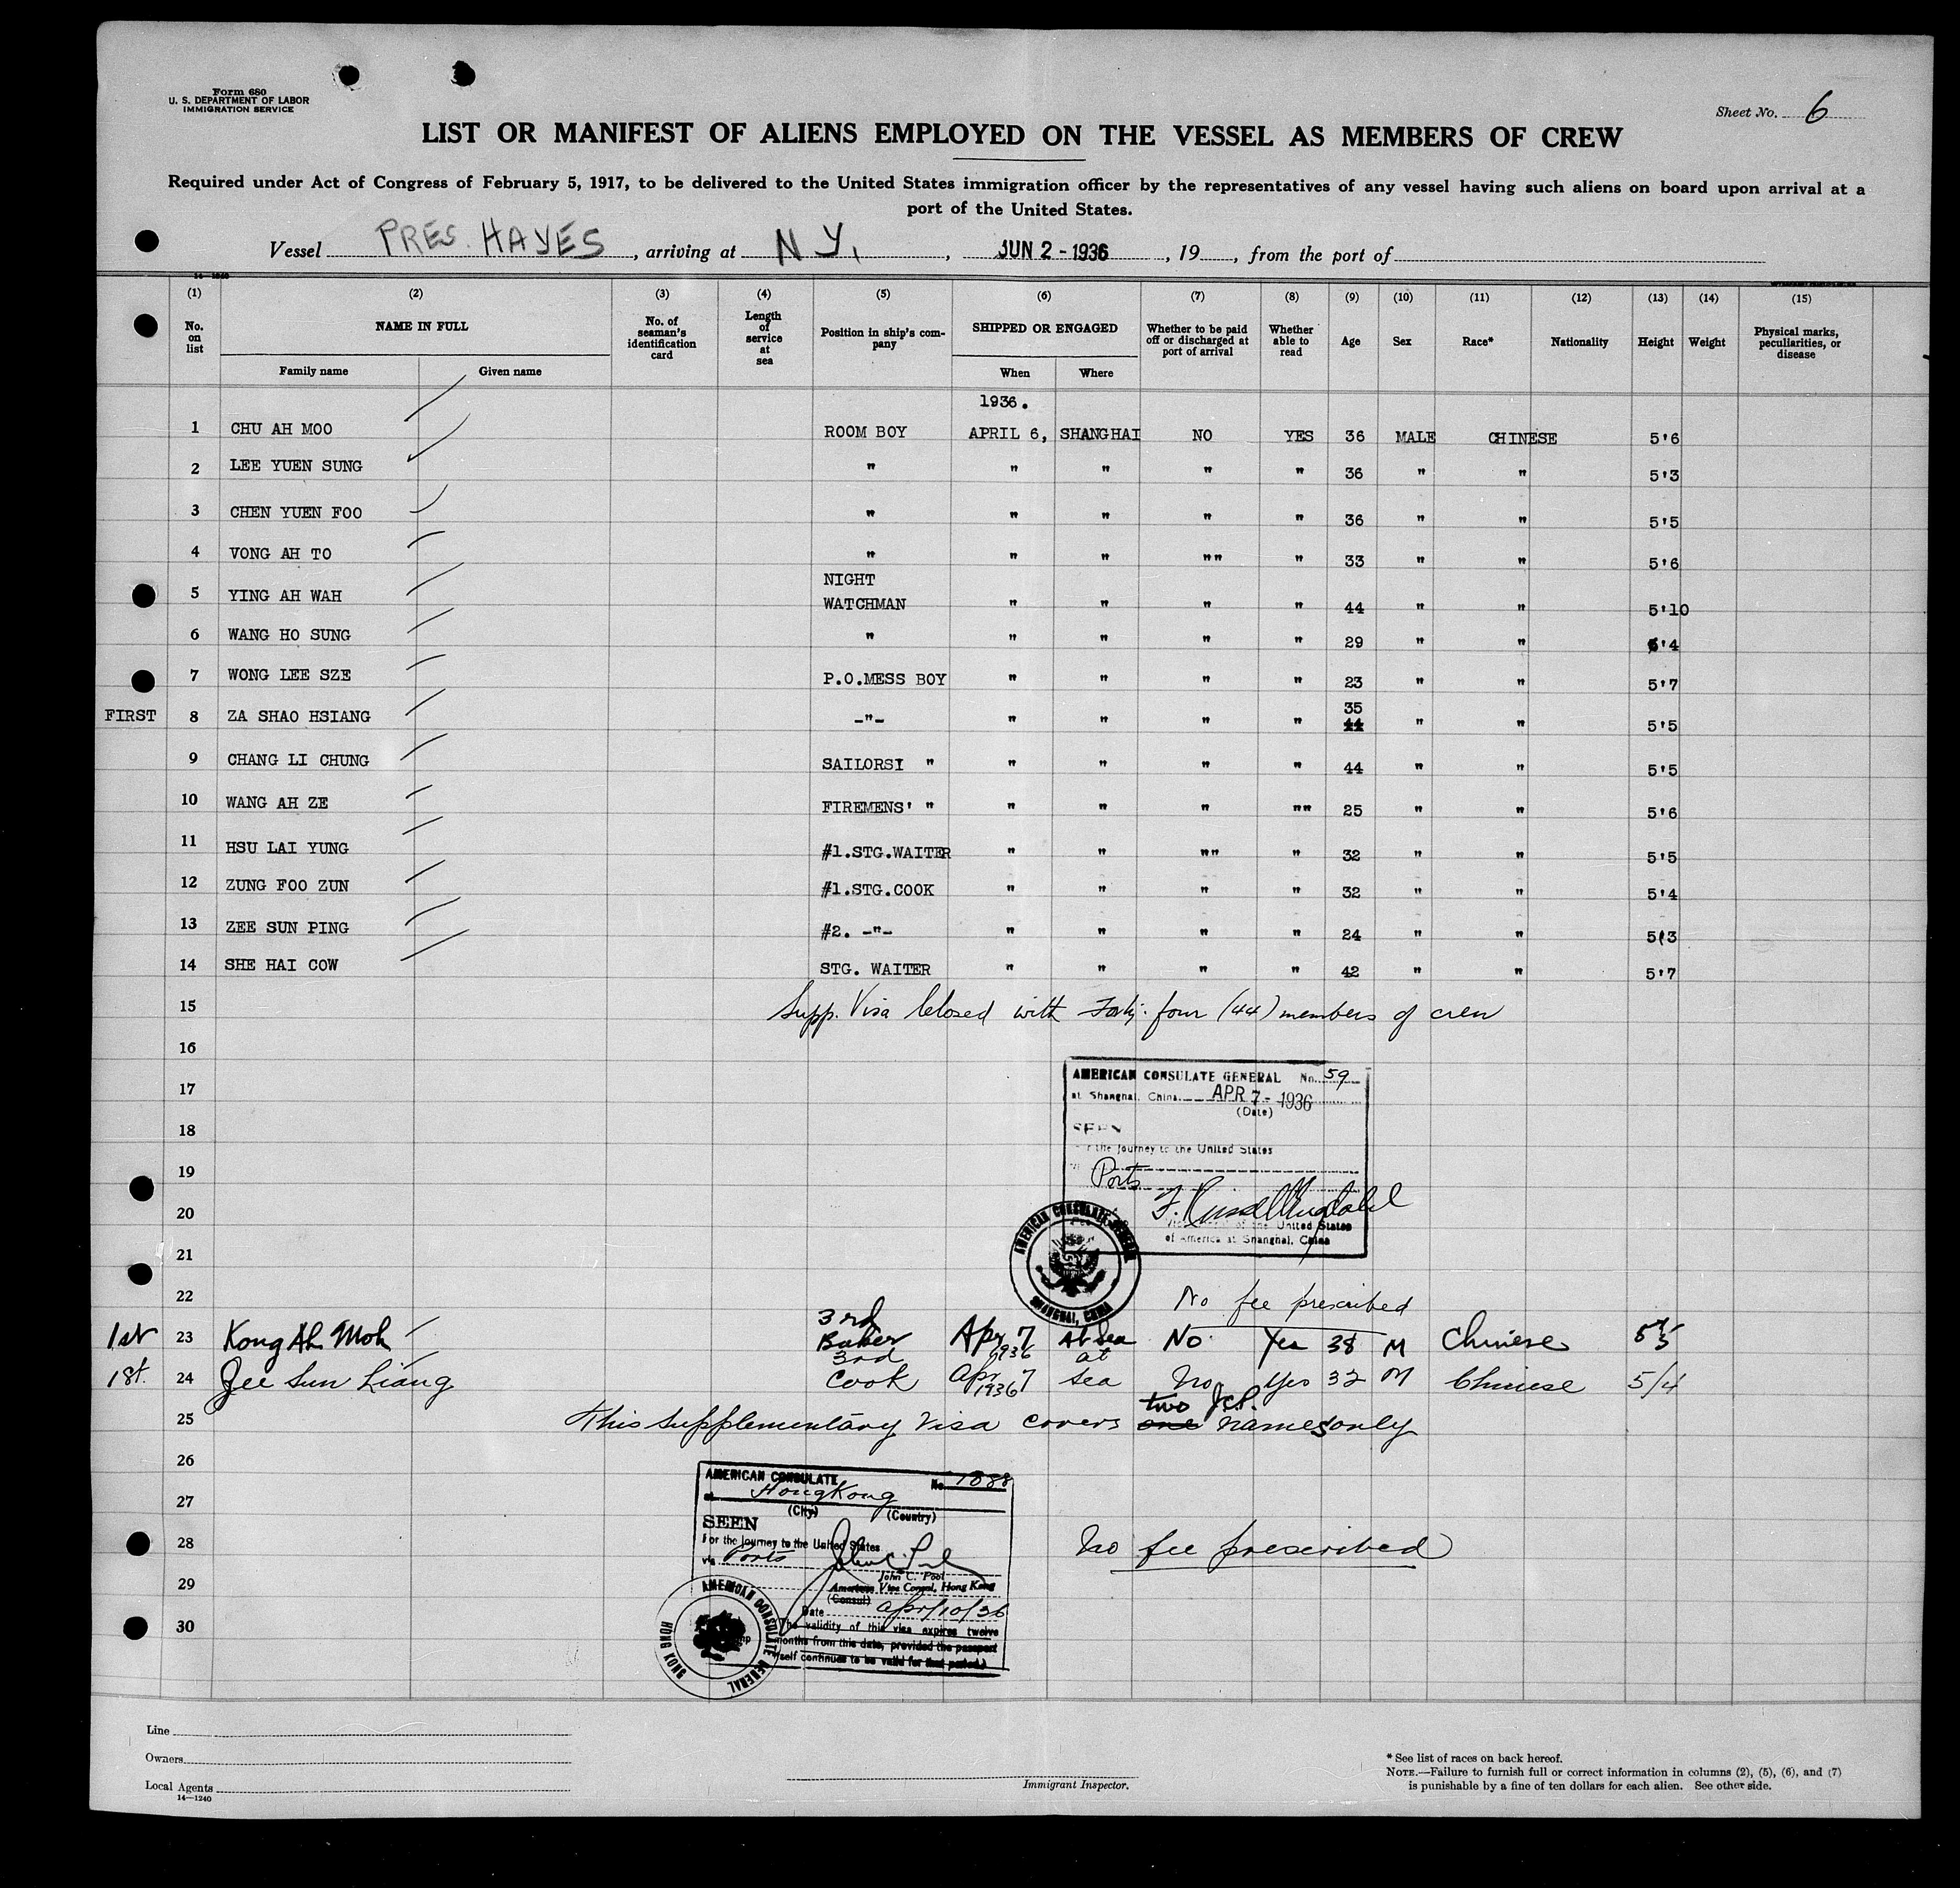 Form 680
U. S. DEPARTMENT OF LABOR
IMMIGRATION SERVICE
Sheet No. 6
LIST OR MANIFEST OF ALIENS EMPLOYED ON THE VESSEL AS MEMBERS OF CREW
Required under Act of Congress of February 5, 1917, to be delivered to the United States immigration officer by the representatives of any vessel having such aliens on board upon arrival at a
port of the United States.
Vessel PRES. HAYES, arriving at N Y, , JUN 2 - 1936, 19 , from the port of
(1) (2) (3) (4) (5) (6) (7) (8) (9) (10) (11) (12) (13) (14) (15)
No. on list NAME IN FULL Family name Given name No. of seaman's identification card Length of service at sea Position in ship's company SHIPPED OR ENGAGED When Where Whether to be paid off or discharged at port of arrival Whether able to read Age Sex Race* Nationality Height Weight Physical marks, peculiarities, or disease
1936.
1 CHU AH MOO ROOM BOY APRIL 6, SHANGHAI NO YES 36 MALE CHINESE 5'6
2 LEE YUEN SUNG " " " " " 36 " " 5'3
3 CHEN YUEN FOO " " " " " 36 " " 5'5
4 VONG AH TO " " " "" " 33 " " 5'6
5 YING AH WAH NIGHT WATCHMAN " " " " 44 " " 5'10
6 WANG HO SUNG " " " " " 29 " " '4
7 WONG LEE SZE P.O.MESS BOY " " " " 23 " " 5'7
FIRST 8 ZA SHAO HSIANG -"- " " " " 35 44 " " 5'5
9 CHANG LI CHUNG SAILORSI " " " " " 44 " " 5'5
10 WANG AH ZE FIREMENS' " " " " "" 25 " " 5'6
11 HSU LAI YUNG #1.STG.WAITER " " "" " 32 " " 5'5
12 ZUNG FOO ZUN #1.STG.COOK " " " " 32 " " 5'4
13 ZEE SUN PING #2. -"- " " " " 24 " " 5'3
14 SHE HAI COW STG. WAITER " " " " 42 " " 5'7
15 Supp. Visa closed with forty-four (44) members of crew
16
17 AMERICAN CONSULATE GENERAL No. 59
at Shanghai, China. APR 7 - 1936
(Date)
18 SEEN
For the journey to the United States
19 Ports
20
Vice Consul of the United States
of America at Shanghai, China
AMERICAN CONSULATE GENERAL SHANGHAI, CHINA
21
22 No fee prescribed
1st 23 Kong Ah Moh 3rd Baker Apr 7 1936 At Sea No. Yes 38 M Chinese 5'5
1st. 24 Zee Sun Liang 3rd Cook Apr 7 1936 at Sea No Yes 32 M Chinese 5/4
two J.C.P.
25 This supplementary visa covers one names only
26 AMERICAN CONSULATE No. 1888
27 at HongKong
(City) (Country)
SEEN
28 For the journey to the United States
via Ports
No fee prescribed
John C. Pool
29 American Vice Consul, Hong Kong
(Consul)
Date Apr/10/36
30 The validity of this visa expires twelve
months from this date, provided the passport
itself continues to be valid for that period.)
AMERICAN CONSULATE GENERAL HONG KONG
Line
Owners
Local Agents
14—1240
Immigrant Inspector.
* See list of races on back hereof.
NOTE.—Failure to furnish full or correct information in columns (2), (5), (6), and (7)
is punishable by a fine of ten dollars for each alien. See other side.